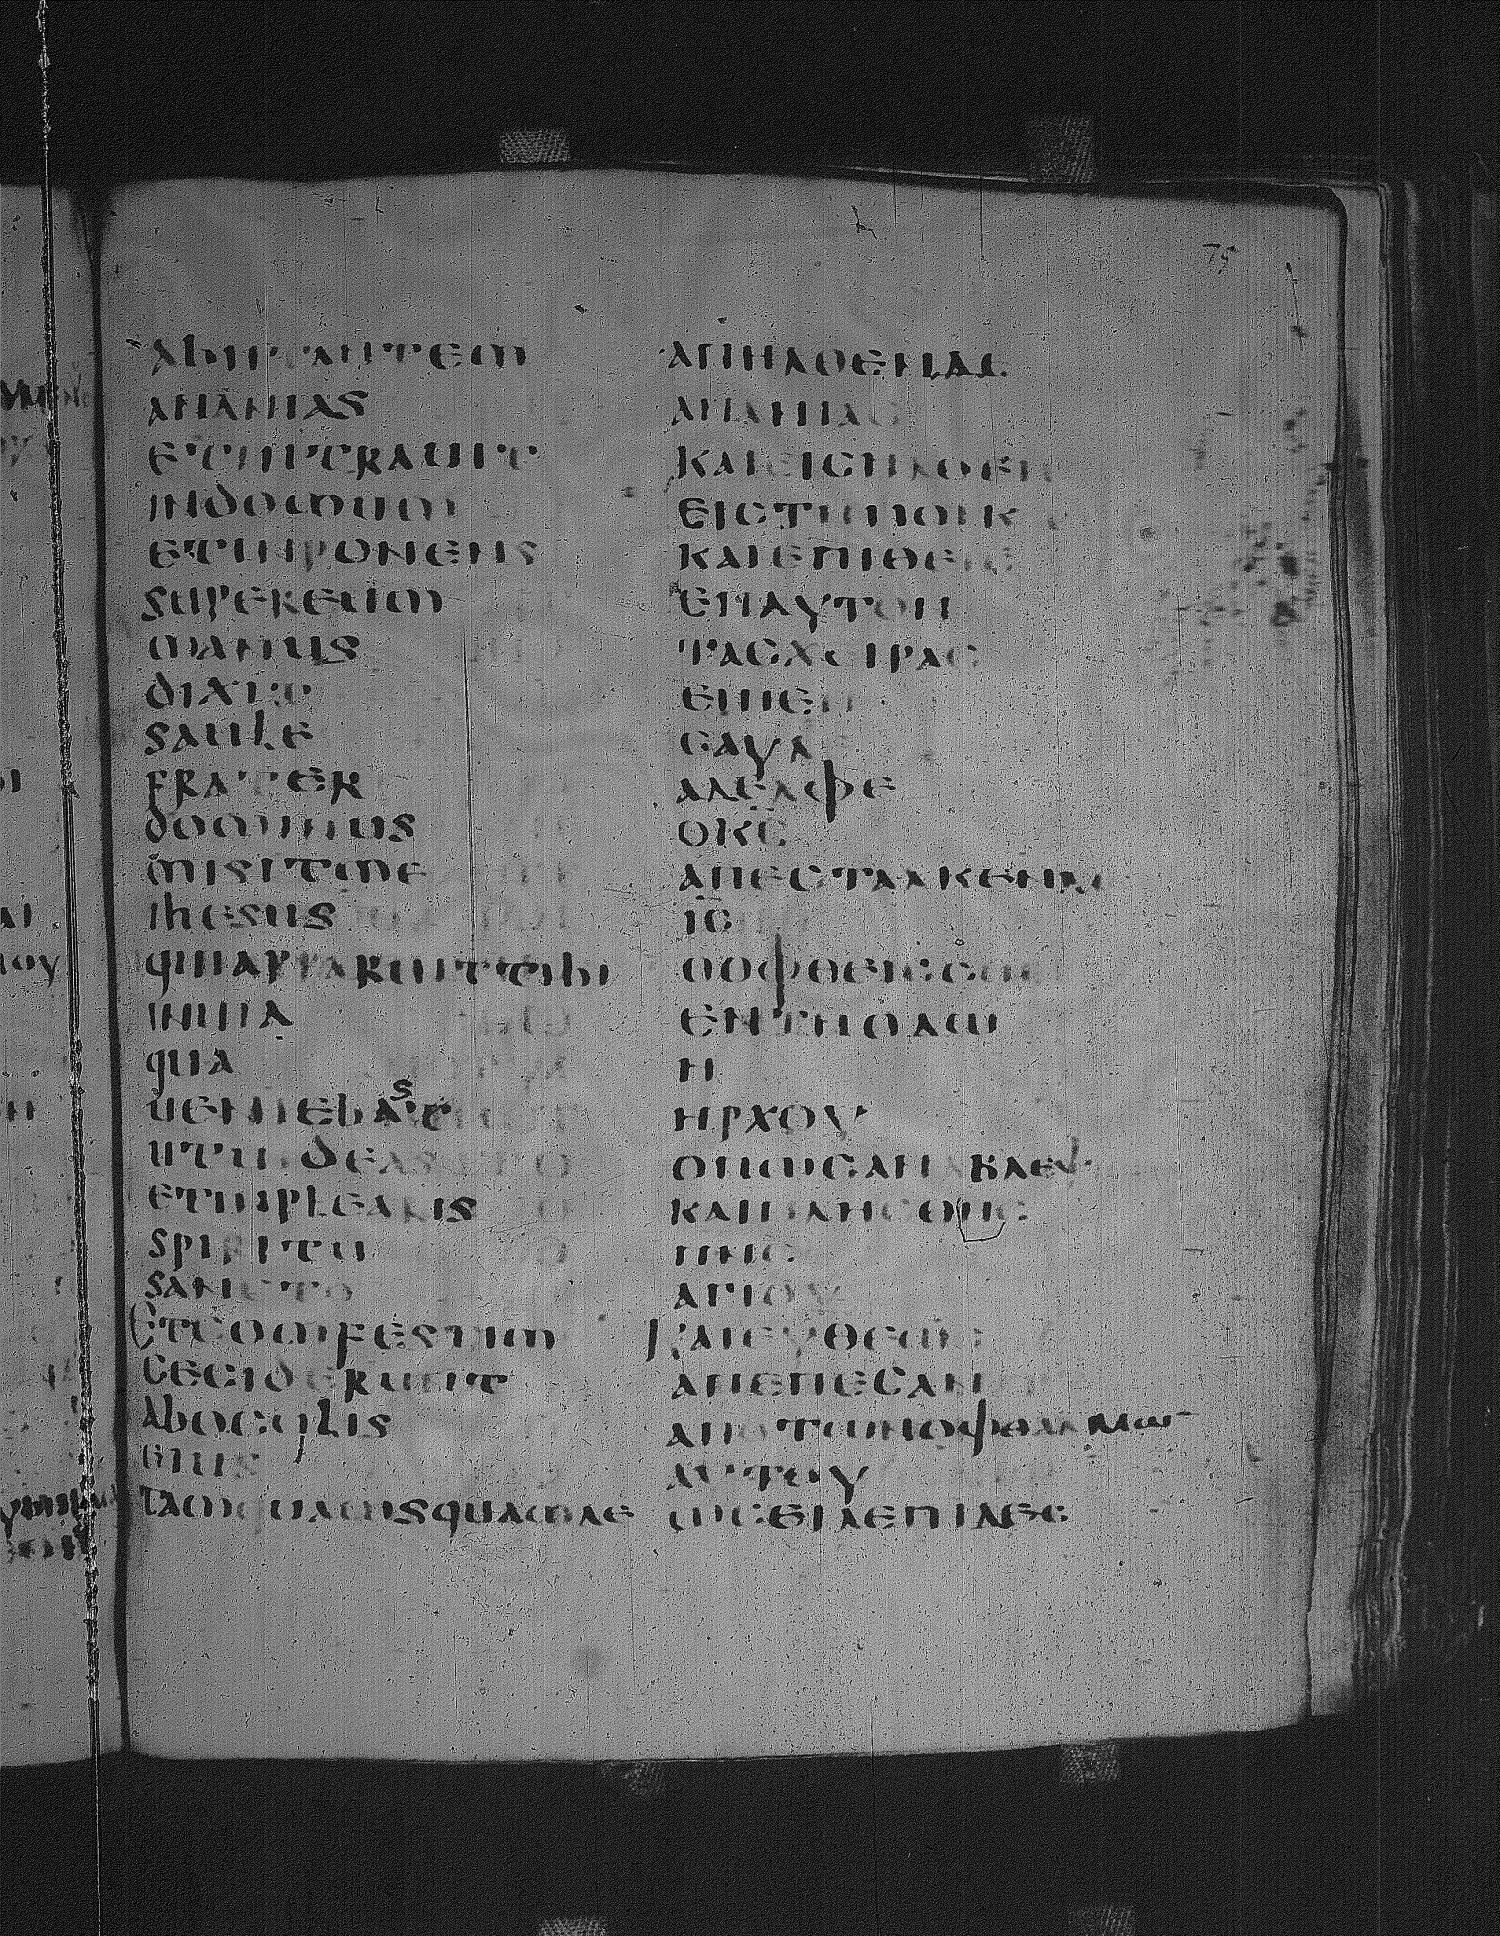 75
abiit autem
ananias
et intrauit
in domum
et inponens
super eum
manus
dixit
saule
frater
dominus
misit me
ihesus
qui apparuit tibi
in uia
qua
ueniebas
ut uideas
et implearis
spiritu
sancto
et confestim
ceciderunt
ab oculis
eius
tamquam squamae
απηλθεν δε
ανανιας
και εισηλθεν
εις την οικ
και επιθεις
επ αυτον
τας χειρας
ειπεν
σαυλ
αδελφε
ο κ̅ς̅
απεσταλκεν με
ι̅ς̅
ο οφθεις σοι
εν τη οδω
η
ηρχου
οπως αναβλεψ
και πλησθης
π̅ν̅ς̅
αγιου
και ευθεως
απεπεσαν
απο των οφθαλμω̅
αυτου
ωσει λεπιδες